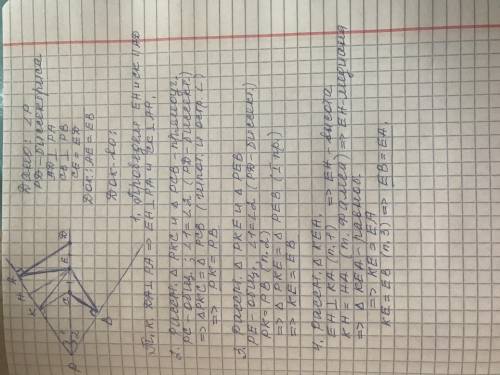 Дано: ∠P
PD - биссектриса
AD ⊥ PA
CB ⊥ PB
CE = ED
Док: AE = EB
Док-во:
1. Проводим EH и CK ∥ AD
Т.к. DA ⊥ PA ⇒ EH ⊥ PA и KC ⊥ AP.
2. Рассм. △ PKC и △ PCB - прямоуг.
PC - общ.; ∠1 = ∠2 (PD - биссект.)
⇒ △PKC = △ PCB (гипот. и остр. ∠)
⇒ PK = PB
3. Рассм. △ PKE и △ PEB
PE - общ.; ∠1 = ∠2 (PD - биссект.)
PK = PB (п. 2)
⇒ △ PKE = △ PEB (I пр.)
⇒ KE = EB
4. Рассм. △ KEA.
EH ⊥ KA (п. 1) ⇒ EH - высота
KH = HA (т. Фалеса) ⇒ EH - медиана
⇒ △ KEA - равноб.
⇒ KE = EA
KE = EB (п. 3) ⇒ EB = EA.
P
1
2
K
H
A
C
E
D
B